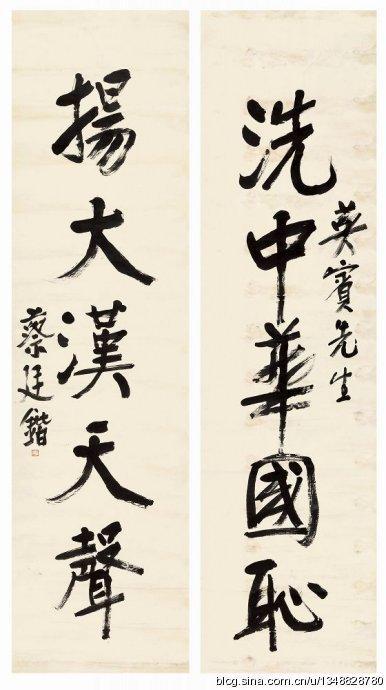 英賓先生
洗中華國恥
揚大漢天聲
蔡廷鍇
blog.sina.com.cn/u/1348828780